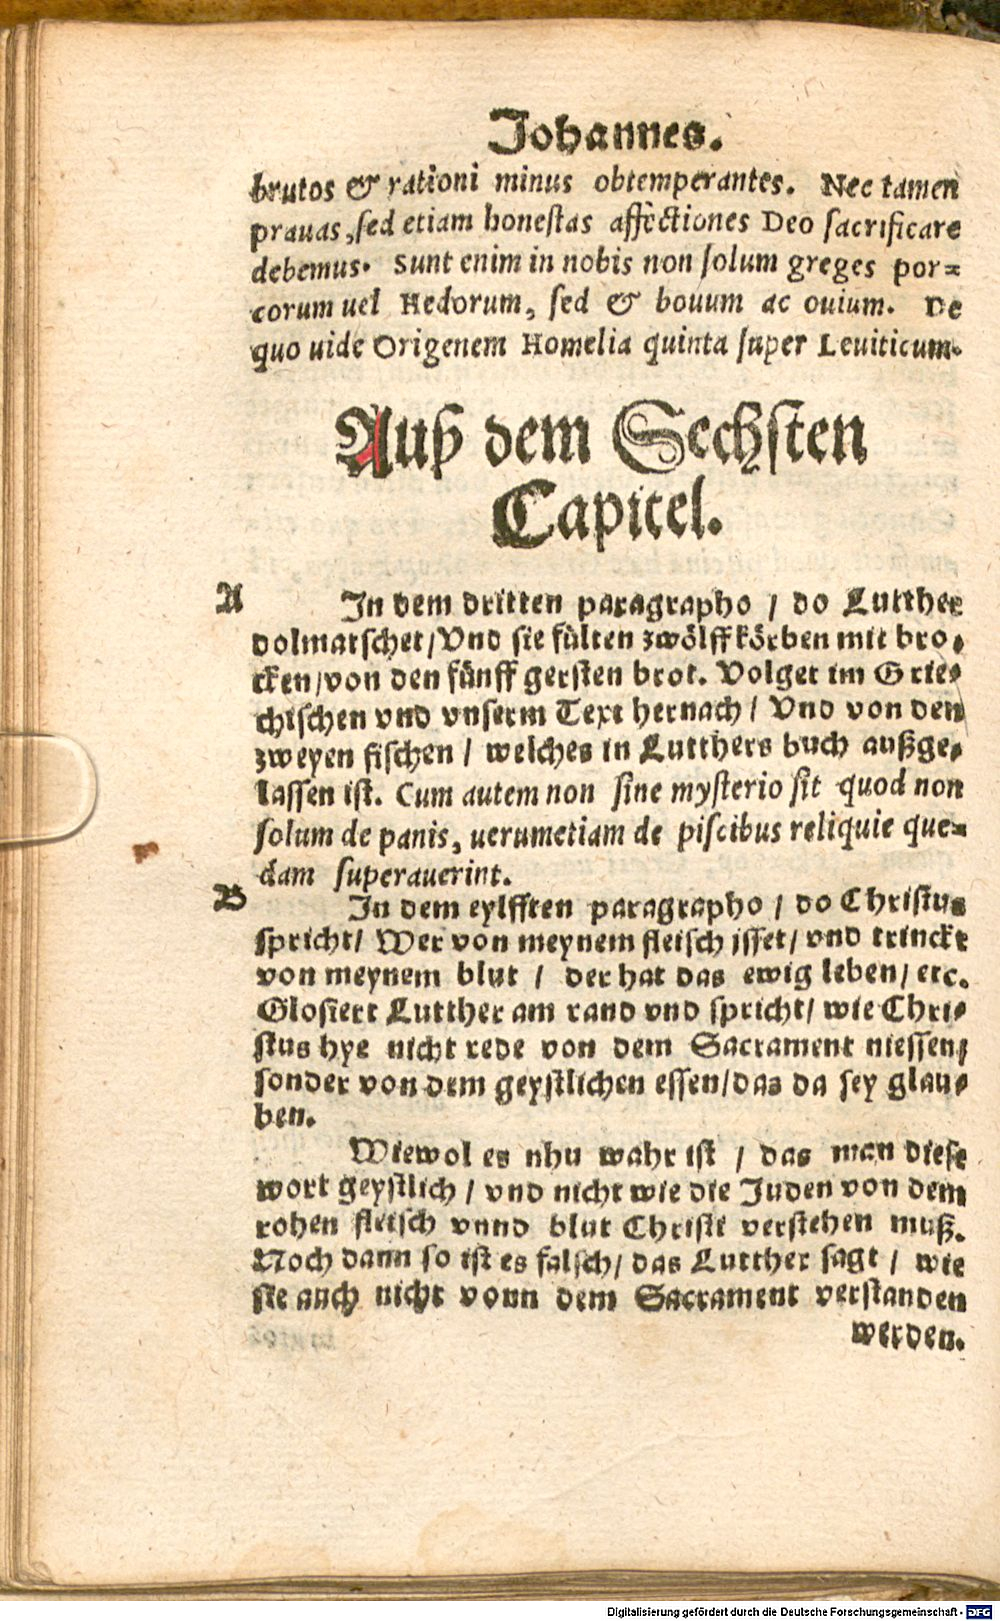 Johannes.
brutos & rationi minus obtemperantes. Nec tamen
prauas, sed etiam honestas affectiones Deo sacrificare
debemus. Sunt enim in nobis non solum greges por=
corum uel Hedorum, sed & bouum ac ouium. De
quo uide Origenem Homelia quinta super Leuiticum.
Auß dem Sechsten
Capitel.
A
In dem dritten paragrapho / do Lutther
dolmatschet / Vnd sie fülten zwölff körben mit bro⸗
cken / von den fünff gersten brot. Volget im Grie⸗
chischen vnd vnserm Text hernach / Vnd von den
zweyen fischen / welches in Lutthers buch außge⸗
lassen ist. Cum autem non sine mysterio sit quod non
solum de panis, uerumetiam de piscibus reliquie que=
dam superauerint.
B
In dem eylfften paragrapho / do Christus
spricht / Wer von meynem fleisch isset / vnd trinckt
von meynem blut / der hat das ewig leben / etc.
Glosiert Lutther am rand vnd spricht / wie Chri⸗
stus hye nicht rede von dem Sacrament niessen /
sonder von dem geystlichen essen / das da sey glau⸗
ben.
Wiewol es nhu wahr ist / das man diese
wort geystlich / vnd nicht wie die Juden von dem
rohen fleisch vnnd blut Christi verstehen muß.
Noch dann so ist es falsch / das Lutther sagt / wie
sie auch nicht vonn dem Sacrament verstanden
werden.
Digitalisierung gefördert durch die Deutsche Forschungsgemeinschaft - DFG